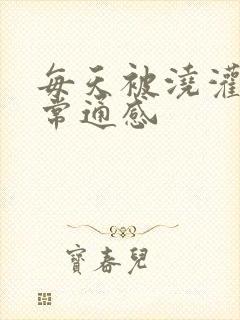 每天被澆灌
常通感
寶春兒